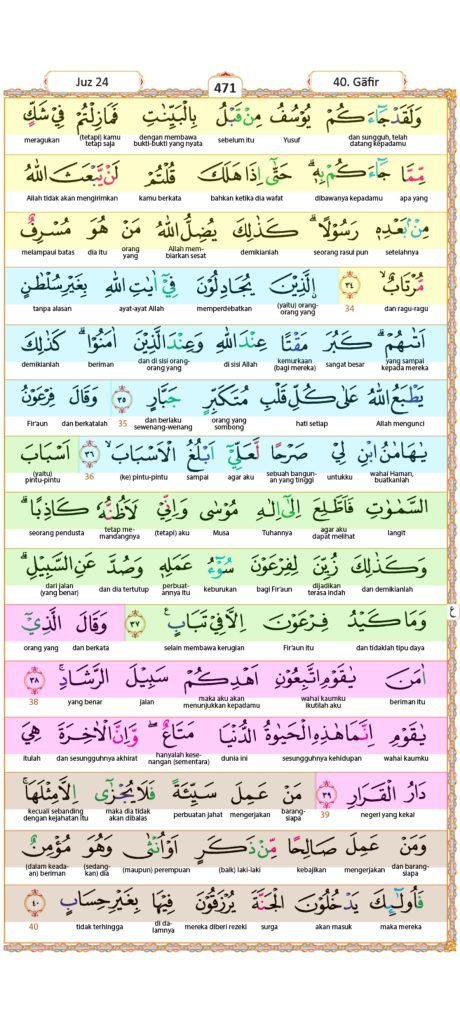 Juz 24
471
40. Gāfir
وَلَقَدْ جَاۤءَكُمْ يُوْسُفُ مِنْ قَبْلُ بِالْبَيِّنٰتِ فَمَا زِلْتُمْ فِيْ شَكٍّ
dan sungguh, telah datang kepadamu Yusuf sebelum itu dengan membawa bukti-bukti yang nyata (tetapi) kamu tetap saja meragukan
مِّمَّا جَاۤءَكُمْ بِهٖ ۗحَتّٰىٓ اِذَا هَلَكَ قُلْتُمْ لَنْ يَّبْعَثَ اللّٰهُ
apa yang dibawanya kepadamu bahkan ketika dia wafat kamu berkata Allah tidak akan mengirimkan
مِنْۢ بَعْدِهٖ رَسُوْلًا ۗ كَذٰلِكَ يُضِلُّ اللّٰهُ مَنْ هُوَ مُسْرِفٌ
setelahnya seorang rasul pun demikianlah Allah membiarkan sesat orang yang dia itu melampaui batas
مُّرْتَابٌۙ ۝٣٤ ۨالَّذِيْنَ يُجَادِلُوْنَ فِيْٓ اٰيٰتِ اللّٰهِ بِغَيْرِ سُلْطٰنٍ
dan ragu-ragu 34 (yaitu) orang-orang yang memperdebatkan ayat-ayat Allah tanpa alasan
اَتٰىهُمْۗ كَبُرَ مَقْتًا عِنْدَ اللّٰهِ وَعِنْدَ الَّذِيْنَ اٰمَنُوْا ۗ كَذٰلِكَ
yang sampai kepada mereka sangat besar kemurkaan (bagi mereka) di sisi Allah dan di sisi orang-orang yang beriman demikianlah
يَطْبَعُ اللّٰهُ عَلٰى كُلِّ قَلْبِ مُتَكَبِّرٍ جَبَّارٍ ۝٣٥ وَقَالَ فِرْعَوْنُ
Allah mengunci hati setiap orang yang sombong dan berlaku sewenang-wenang 35 dan berkatalah Fir'aun
يٰهَامٰنُ ابْنِ لِيْ صَرْحًا لَّعَلِّيْٓ اَبْلُغُ الْاَسْبَابَۙ ۝٣٦ اَسْبَابَ
wahai Haman, buatkanlah untukku sebuah bangunan yang tinggi agar aku sampai (ke) pintu-pintu 36 (yaitu) pintu-pintu
السَّمٰوٰتِ فَاَطَّلِعَ اِلٰٓى اِلٰهِ مُوْسٰى وَاِنِّيْ لَاَظُنُّهٗ كَاذِبًا ۗ
langit agar aku dapat melihat Tuhannya Musa (tetapi) aku tetap memandangnya seorang pendusta
وَكَذٰلِكَ زُيِّنَ لِفِرْعَوْنَ سُوْۤءُ عَمَلِهٖ وَصُدَّ عَنِ السَّبِيْلِ ۗ
dan demikianlah dijadikan terasa indah bagi Fir'aun keburukan perbuatannya itu dan dia tertutup dari jalan (yang benar)
وَمَا كَيْدُ فِرْعَوْنَ اِلَّا فِيْ تَبَابٍ ࣖ ۝٣٧ وَقَالَ الَّذِيْٓ
dan tidaklah tipu daya Fir'aun itu selain membawa kerugian 37 dan berkata orang yang
اٰمَنَ يٰقَوْمِ اتَّبِعُوْنِ اَهْدِكُمْ سَبِيْلَ الرَّشَادِۚ ۝٣٨
beriman itu wahai kaumku ikutilah aku maka aku akan menunjukkan kepadamu jalan yang benar 38
يٰقَوْمِ اِنَّمَا هٰذِهِ الْحَيٰوةُ الدُّنْيَا مَتَاعٌ ۖوَّاِنَّ الْاٰخِرَةَ هِيَ
wahai kaumku sesungguhnya kehidupan dunia ini hanyalah kesenangan (sementara) dan sesungguhnya akhirat itulah
دَارُ الْقَرَارِ ۝٣٩ مَنْ عَمِلَ سَيِّئَةً فَلَا يُجْزٰىٓ اِلَّا مِثْلَهَاۚ
negeri yang kekal 39 barangsiapa mengerjakan perbuatan jahat maka dia tidak akan dibalas kecuali sebanding dengan kejahatan itu
وَمَنْ عَمِلَ صَالِحًا مِّنْ ذَكَرٍ اَوْ اُنْثٰى وَهُوَ مُؤْمِنٌ
dan barangsiapa mengerjakan kebajikan (baik) laki-laki (maupun) perempuan (sedangkan) dia (dalam keadaan) beriman
فَاُولٰۤىِٕكَ يَدْخُلُوْنَ الْجَنَّةَ يُرْزَقُوْنَ فِيْهَا بِغَيْرِ حِسَابٍ ۝٤٠
maka mereka akan masuk surga mereka diberi rezeki di dalamnya tidak terhingga 40
ع